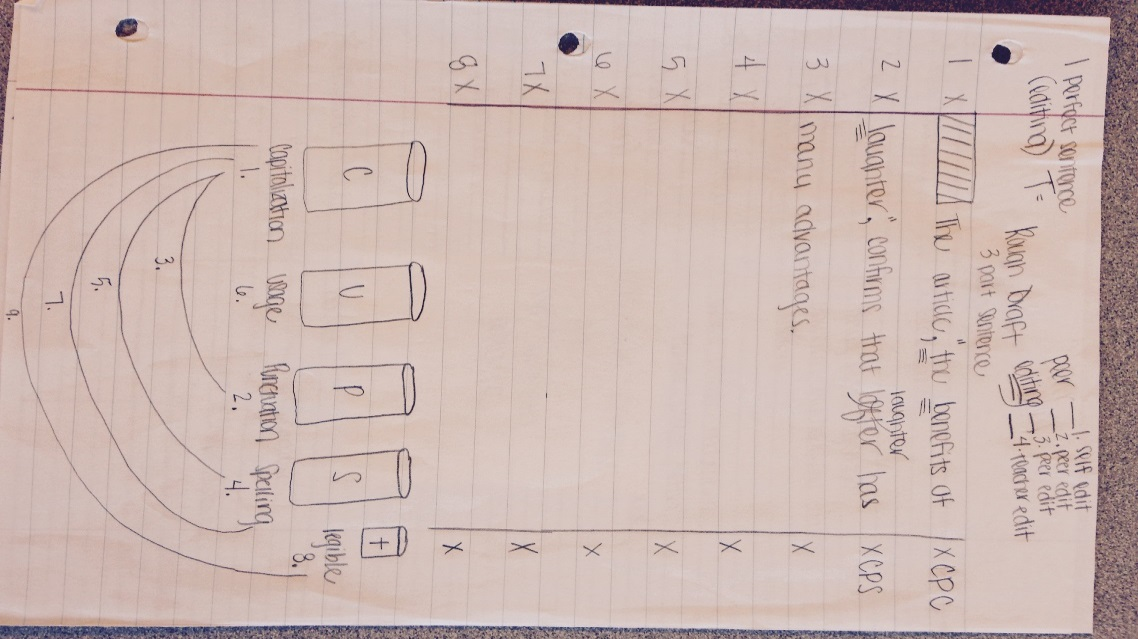 1 perfect sentence
(editing) T=
Rough Draft
3 part sentence
peer
editing
1. self edit
2. peer edit
3. peer edit
4. teacher edit
1 X The article, "the benefits of XCPC
2 X laughter," confirms that lafter has XCPS
laughter
3 X many advantages. X
4 X X
5 X X
6 X X
7 X X
8 X X
C U P S +
capitalization usage Punctuation spelling legible
1. 6. 2. 4. 8.
3.
5.
7.
9.